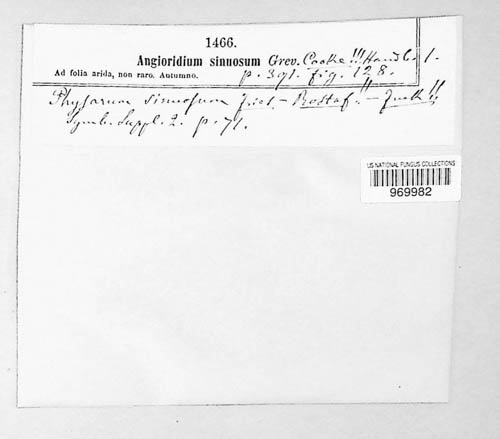 1466.
Angioridium sinuosum Grev. Cooke!!! Handb. 1.
Ad folia arida, non raro. Autumno. p. 391. fig. 128.
Physarum sinuosum Fr. – Rostaf.!! – Fuck!!
Symb. Suppl. 2. p. 71.
US NATIONAL FUNGUS COLLECTIONS
969982